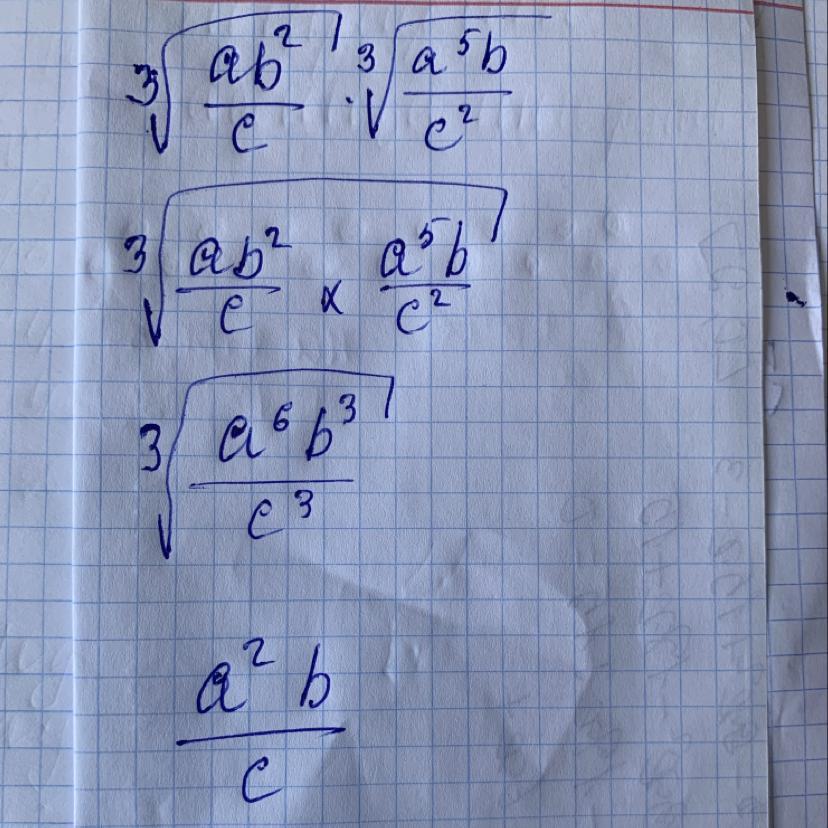 ∛(ab²/c) · ∛(a⁵b/c²)
∛(ab²/c × a⁵b/c²)
∛(a⁶b³/c³)
a²b/c